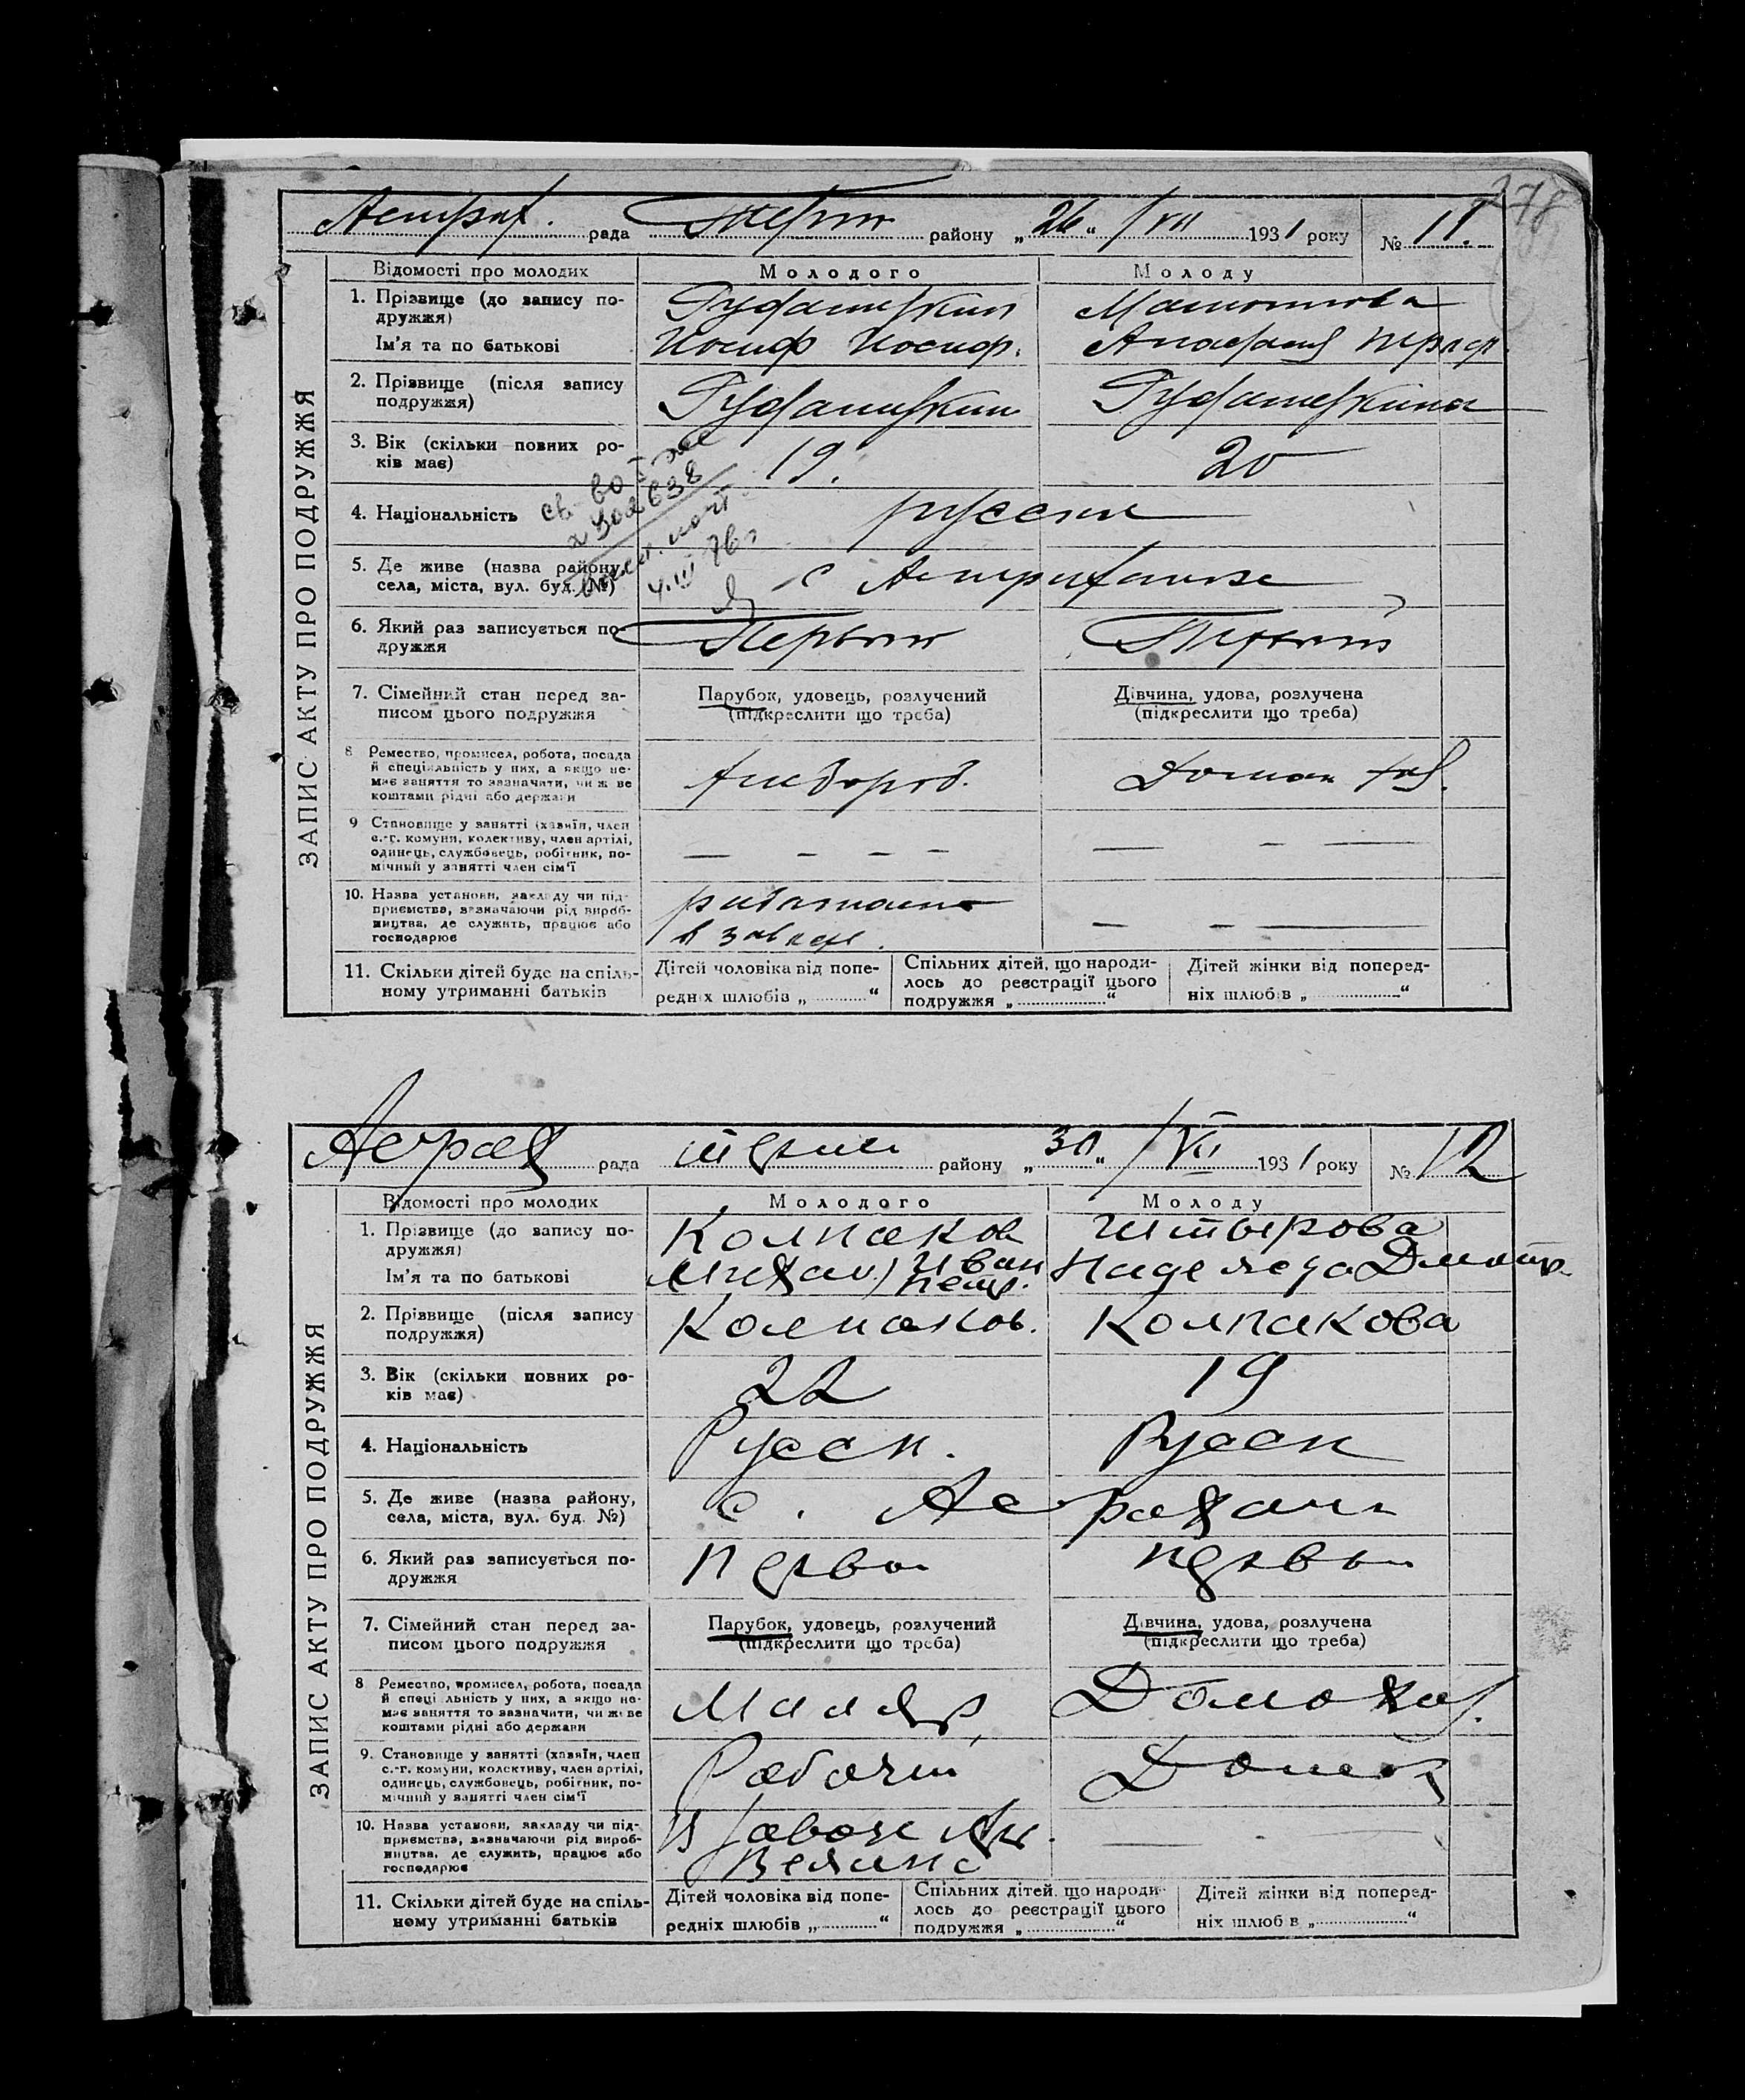 278
рада району „26“ VII 1931 року № 11.
Відомості про молодих Молодого Молоду
ЗАПИС АКТУ ПРО ПОДРУЖЖЯ
1. Прізвище (до запису по-
дружжя)
Ім’я та по батькові
Иосиф Иосиф.
2. Прізвище (після запису
подружжя)
3. Вік (скільки повних ро-
ків має)
19. 20
4. Національність
св-во
русские
5. Де живе (назва району,
села, міста, вул. буд. №)
с
6. Який раз записується по-
дружжя
Первый Первый
7. Сімейний стан перед за-
писом цього подружжя
Парубок, удовець, розлучений
(підкреслити що треба)
Дівчина, удова, розлучена
(підкреслити що треба)
8 Ремество, промисел, робота, посада
й спеціяльність у них, а якщо не-
має заняття то зазначити, чи ж не
коштами рідні або держави
9 Становище у занятті (хазяїн, член
с.-г. комуни, колективу, член артілі,
одинець, службовець, робітник, по-
мічний у занятті член сім’ї
— — — — — — —
10. Назва установи, закладу чи під-
приємства, зазначаючи рід вироб-
ництва, де служить, працює або
господарює
в заводе.
— — —
11. Скільки дітей буде на спіль-
ному утриманні батьків
Дітей чоловіка від попе-
редніх шлюбів „ “
Спільних дітей, що народи-
лось до реєстрації цього
подружжя „ “
Дітей жінки від поперед-
ніх шлюбів „ “
рада району „30“ VII 1931 року № 12
Відомості про молодих Молодого Молоду
ЗАПИС АКТУ ПРО ПОДРУЖЖЯ
1. Прізвище (до запису по-
дружжя)
Ім’я та по батькові
Колпаков Штырова
Иван
Петр.
Надежда Дмитр.
2. Прізвище (після запису
подружжя)
Колпаков. Колпакова
3. Вік (скільки повних ро-
ків має)
22 19
4. Національність
Русск. Русск
5. Де живе (назва району,
села, міста, вул. буд. №)
с.
6. Який раз записується по-
дружжя
Первы Первы
7. Сімейний стан перед за-
писом цього подружжя
Парубок, удовець, розлучений
(підкреслити що треба)
Дівчина, удова, розлучена
(підкреслити що треба)
8 Ремество, промисел, робота, посада
й спеціяльність у них, а якщо не-
має заняття то зазначити, чи ж не
коштами рідні або держави
Маляр Домохоз.
9. Становище у занятті (хазяїн, член
с.-г. комуни, колективу, член артілі,
одинець, службовець, робітник, по-
мічний у занятті член сім’ї
Рабочий
10. Назва установи, закладу чи під-
приємства, зазначаючи рід вироб-
ництва, де служить, працює або
господарює
11. Скільки дітей буде на спіль-
ному утриманні батьків
Дітей чоловіка від попе-
редніх шлюбів „ “
Спільних дітей, що народи-
лось до реєстрації цього
подружжя „ “
Дітей жінки від поперед-
ніх шлюбів „ “